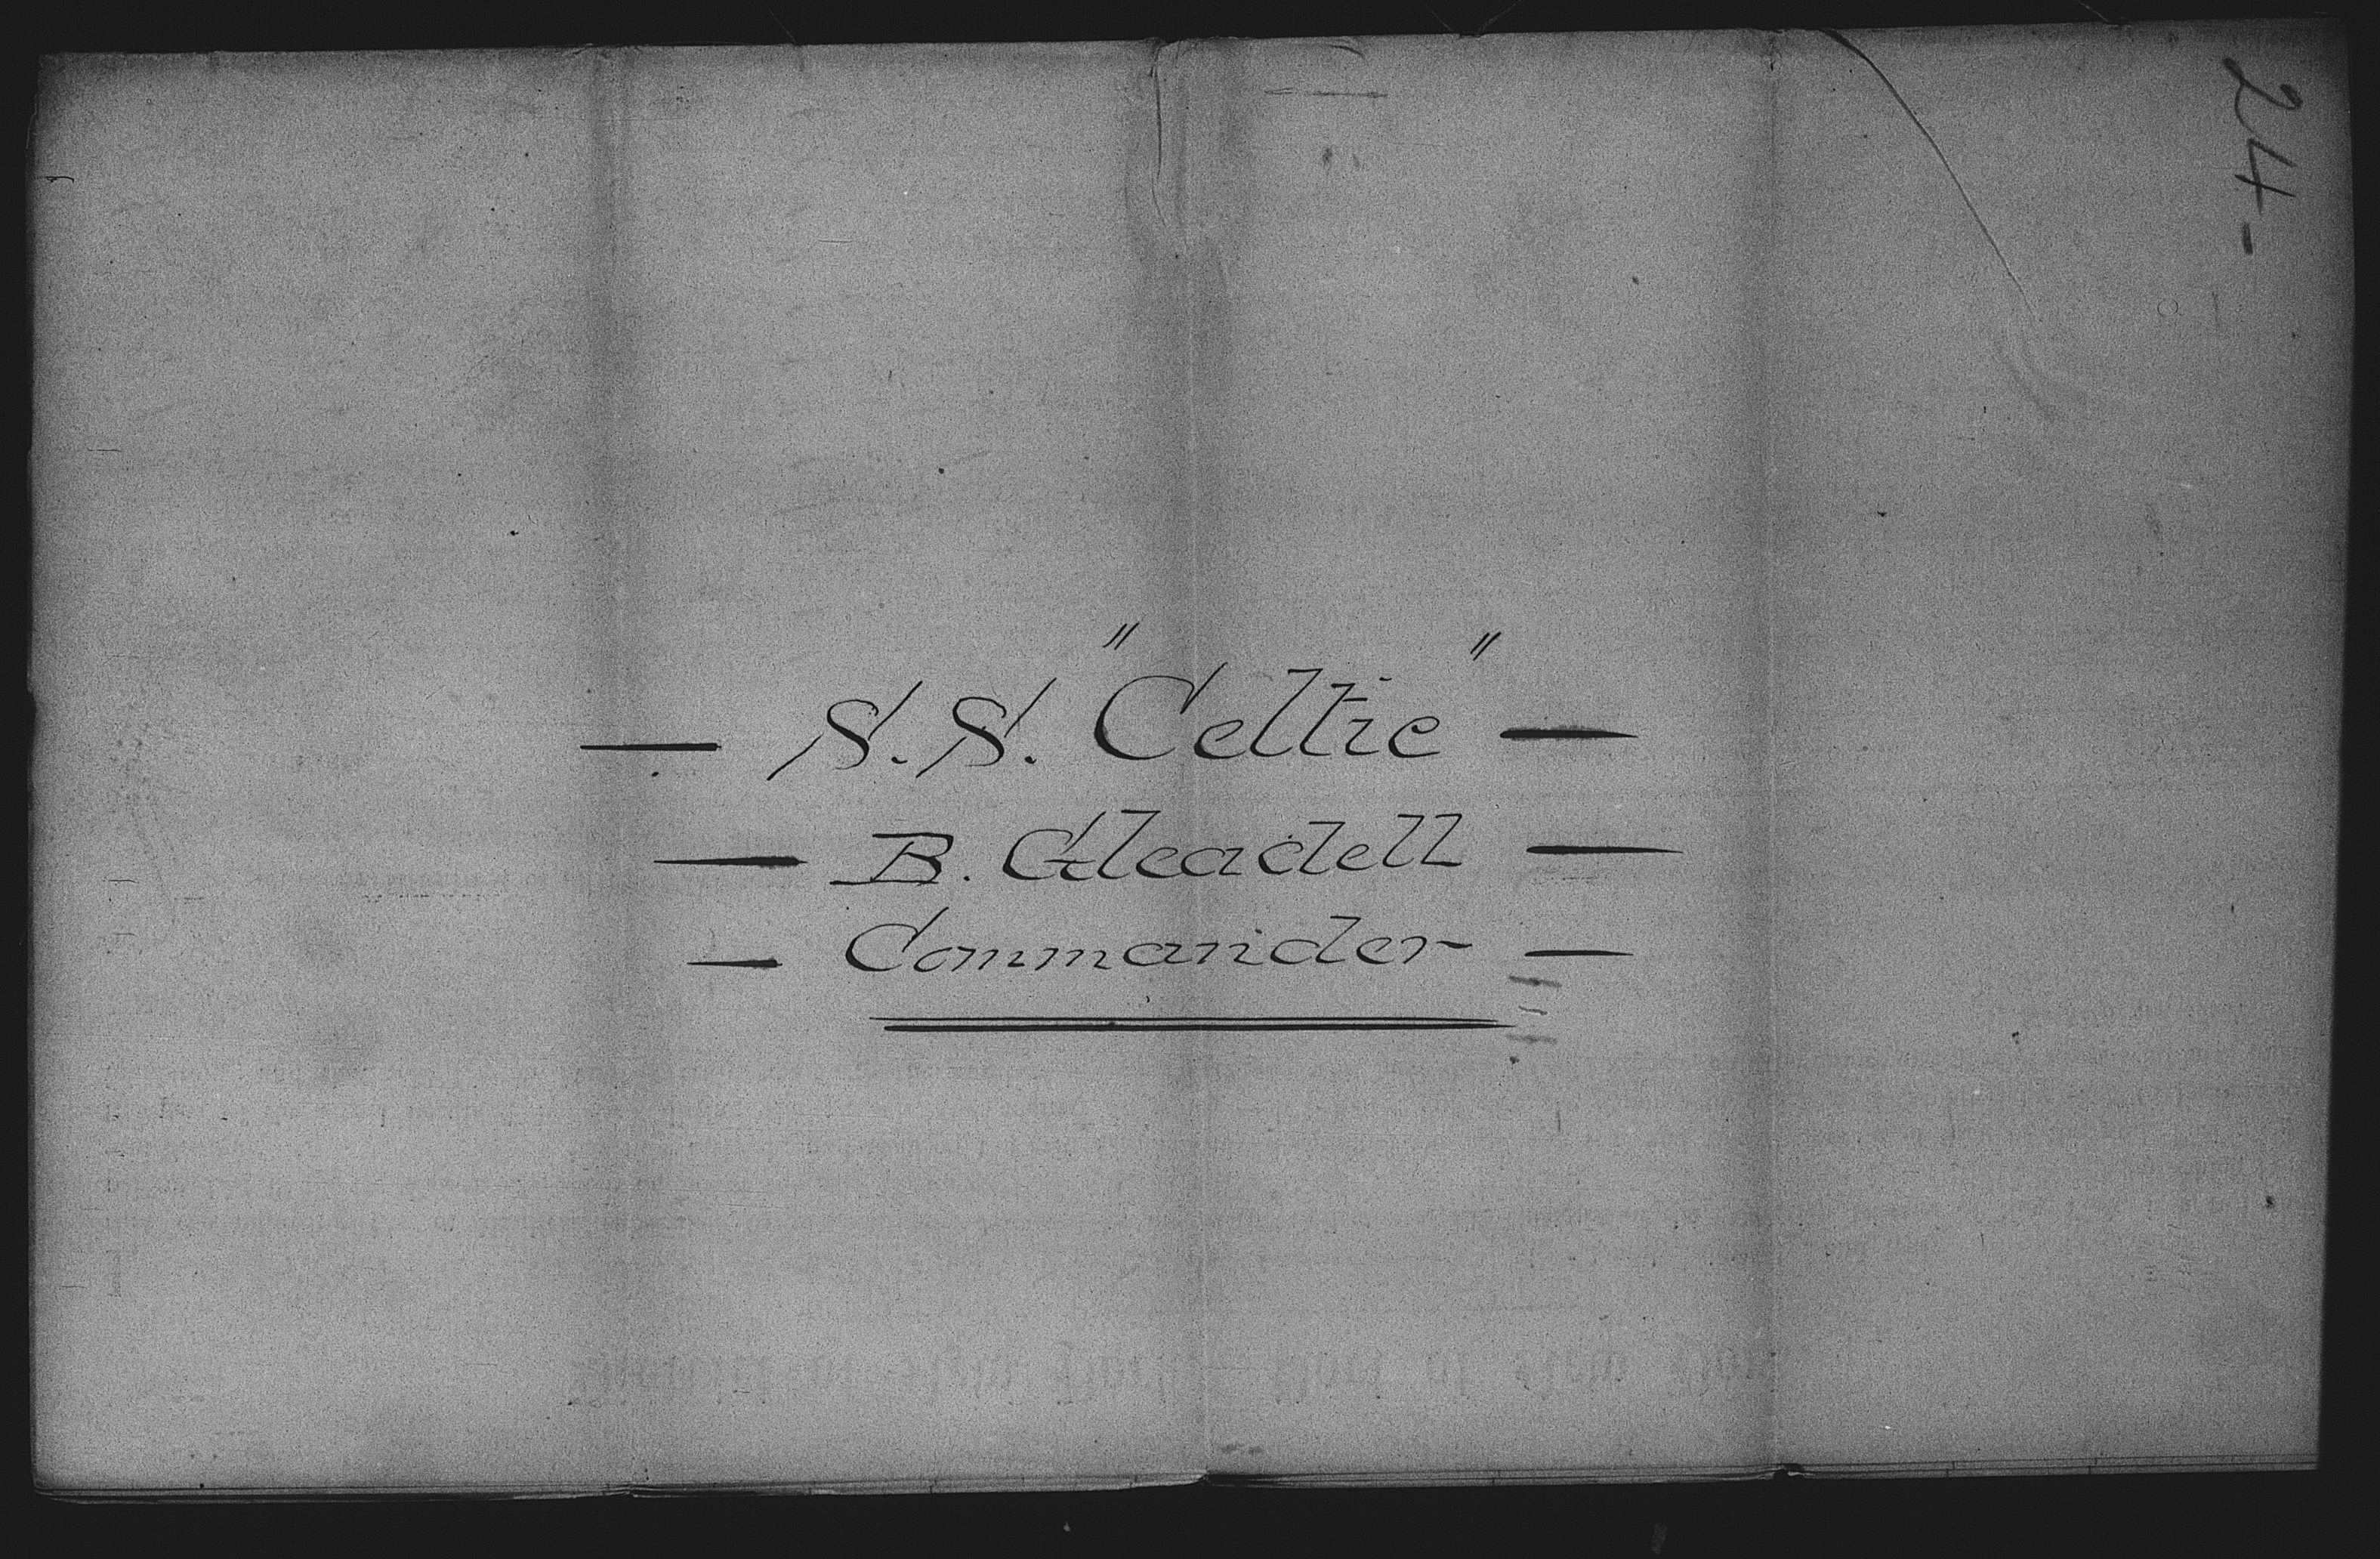 24-
— S.S. "Celtic" —
— B. Gleadell —
— Commander —